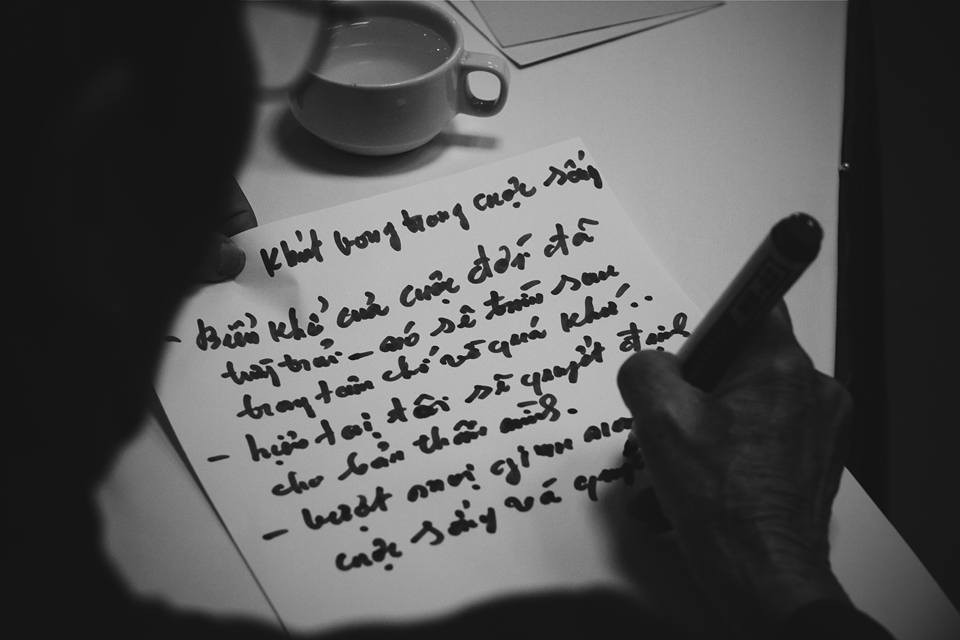 Khát vọng trong cuộc sống
- Biển khổ của cuộc đời đã
trải - nó sẽ sau
trong tâm chí về quá khứ...
- hiện tại tôi sẽ quyết định
cho bản thân mình.
- vượt mọi gian
cuộc sống và